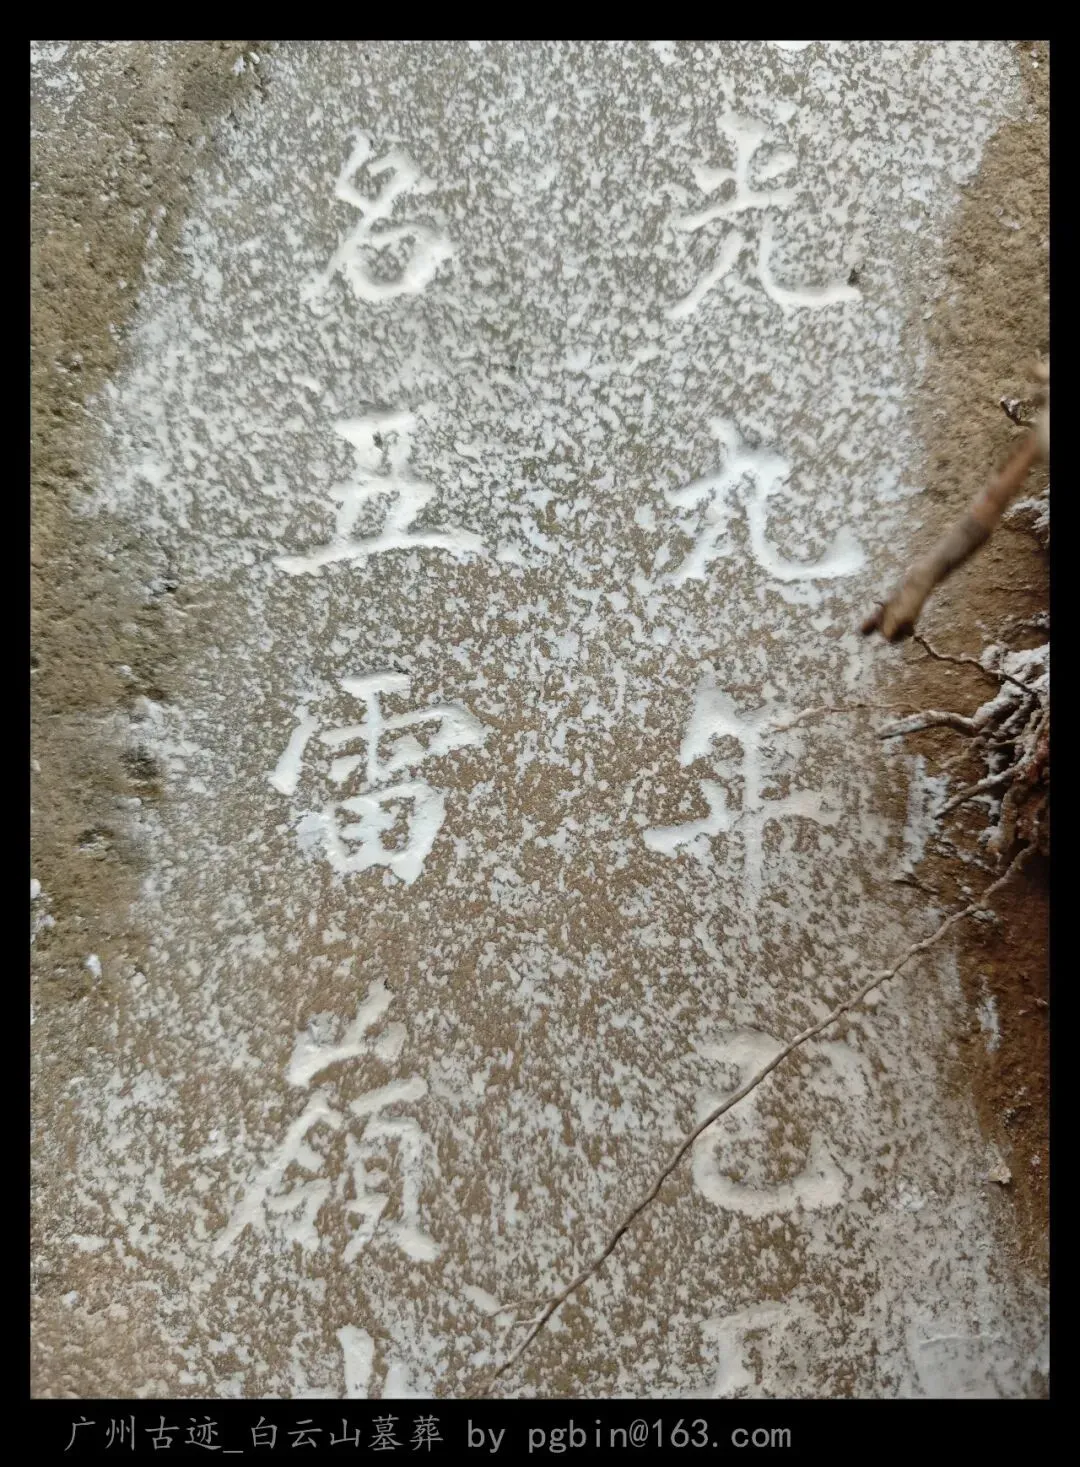 光九年己
名五雷嶺
广州古迹_白云山墓葬 by pgbin@163.com